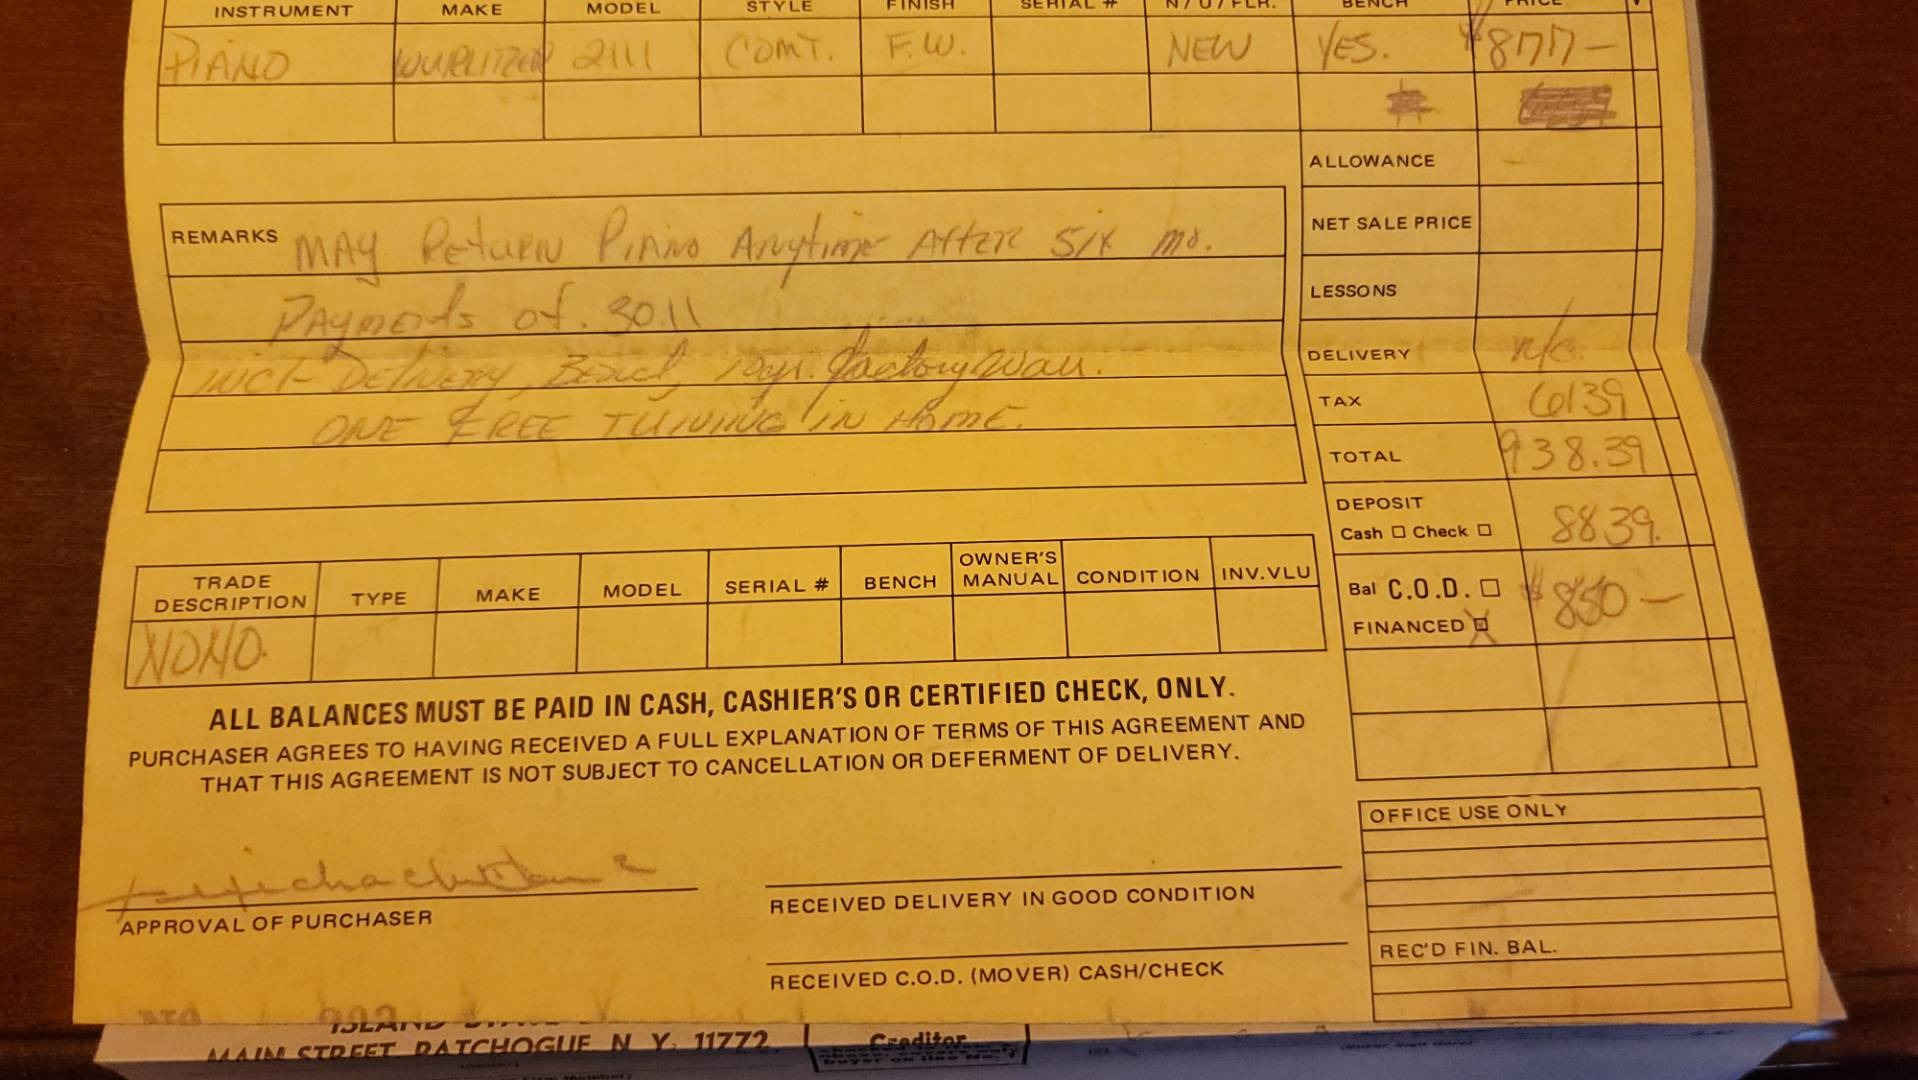 INSTRUMENT MAKE MODEL STYLE FINISH SERIAL # N / U / FLR. BENCH PRICE
PIANO WURLITZER 2111 CONT. F.W. NEW YES. $877—
ALLOWANCE —
NET SALE PRICE
REMARKS MAY RETURN PIANO ANYTIME AFTER SIX MO.
PAYMENTS OF. 30.11
LESSONS
INCL- DELIVERY, BENCH, 10yr. factory Warr.
DELIVERY n/c.
ONE FREE TUNING IN HOME.
TAX 6139
TOTAL 938.39
DEPOSIT
Cash □ Check □ 8839.
TRADE DESCRIPTION TYPE MAKE MODEL SERIAL # BENCH OWNER'S MANUAL CONDITION INV.VLU
NONO.
Bal C.O.D. □ $850—
FINANCED
ALL BALANCES MUST BE PAID IN CASH, CASHIER'S OR CERTIFIED CHECK, ONLY.
PURCHASER AGREES TO HAVING RECEIVED A FULL EXPLANATION OF TERMS OF THIS AGREEMENT AND
THAT THIS AGREEMENT IS NOT SUBJECT TO CANCELLATION OR DEFERMENT OF DELIVERY.
OFFICE USE ONLY
APPROVAL OF PURCHASER
RECEIVED DELIVERY IN GOOD CONDITION
REC'D FIN. BAL.
RECEIVED C.O.D. (MOVER) CASH/CHECK
ISLAND
MAIN STREET, PATCHOGUE N. Y. 11772
Creditor